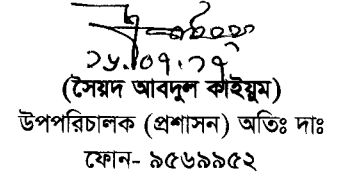 (সৈয়দ আবদুল কাইয়ুম)
উপপরিচালক (প্রশাসন) অতিঃ দাঃ
ফোন- ৯৫৬৯৯৫২